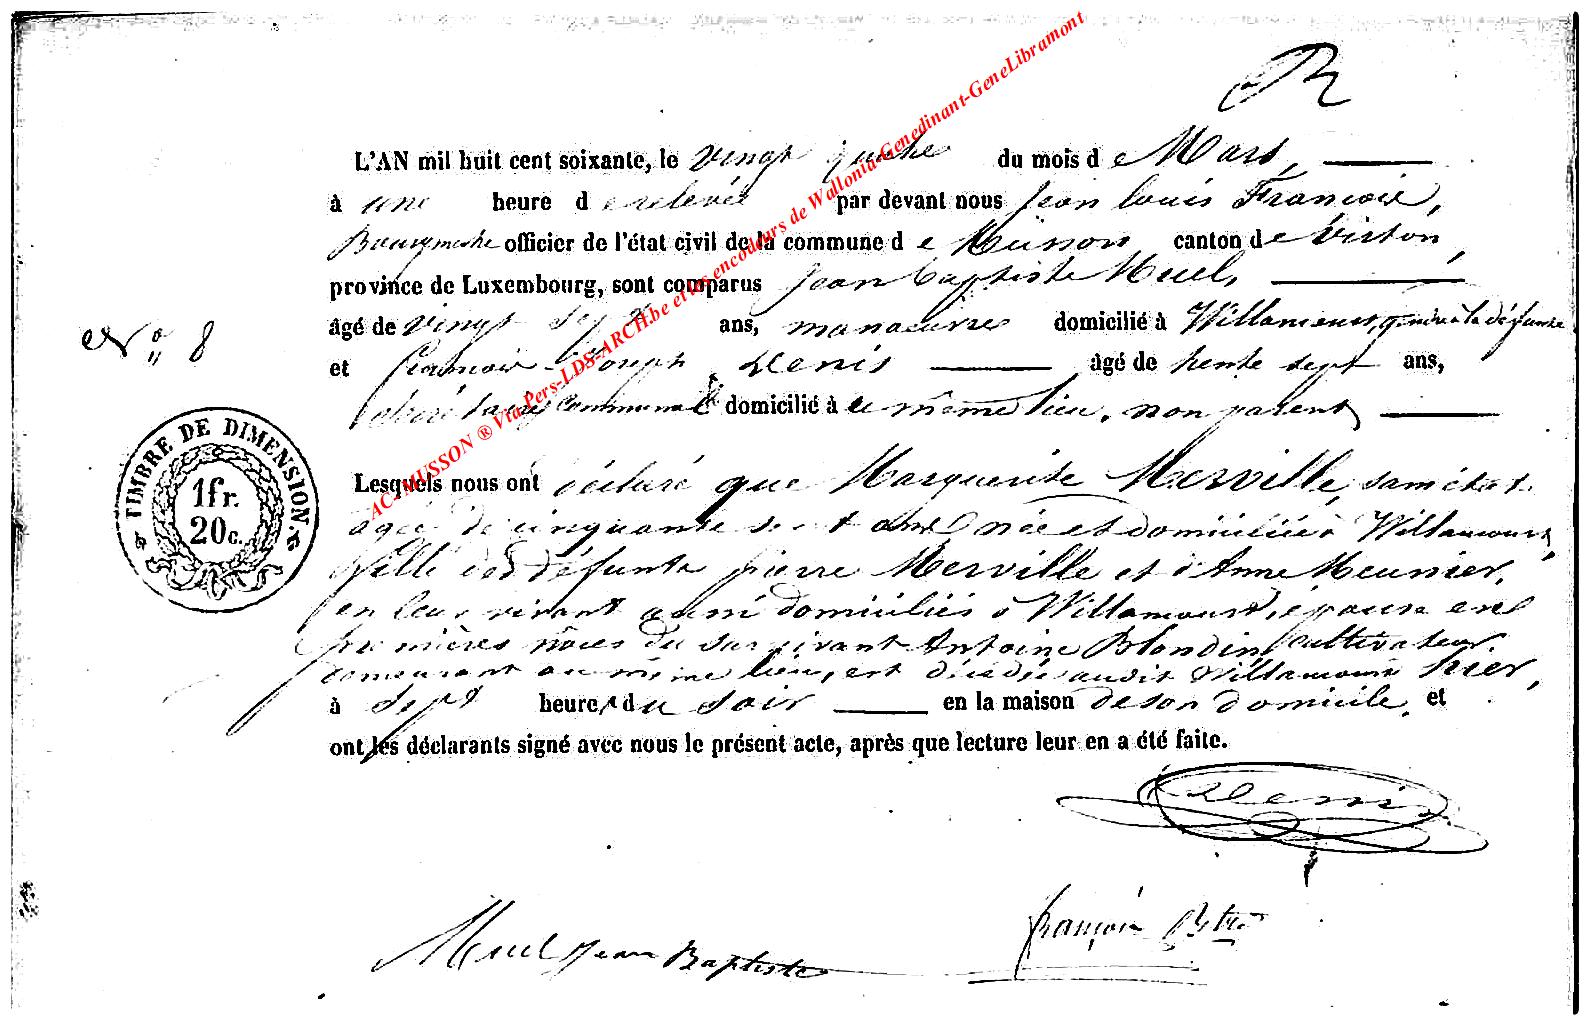 L'AN mil huit cent soixante, le vingt quatre du mois de Mars,
à une heure de relevée par devant nous Jean Louis François,
Bourgmestre officier de l'état civil de la commune de Musson, canton de Virton,
province de Luxembourg, sont comparus Jean Baptiste Muel,
âgé de vingt sept ans, manœuvre domicilié à Willancourt, gendre à la défunte
N° 8
et François Joseph Denis âgé de trente sept ans,
secrétaire communal domicilié à ce même lieu, non parent,
Lesquels nous ont déclaré que Marguerite Merville, sans état
agée de cinquante sept ans née et domiciliée à Willancourt,
fille des défunts pierre Merville et d'Anne Meunier,
en leur vivant aussi domiciliés à Willancourt, épouse en
premières nôces du survivant Antoine Blondin, cultivateur,
demeurant au même lieu, est décédée audit Willancourt hier,
à sept heures du soir en la maison de son domicile, et
ont les déclarants signé avec nous le présent acte, après que lecture leur en a été faite.
TIMBRE DE DIMENSION.
1fr.
20c.
Denis
Muel Jean Baptiste
françois Bstre
AC-MUSSON ® Via Pers-LDS-ARCH.be et les encodeurs de Wallonia-Genedinant-GeneLibramont